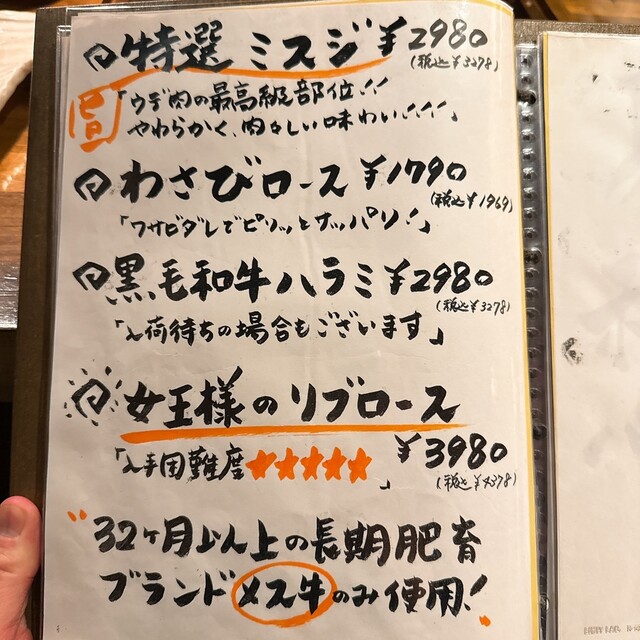 特選 ミスジ ¥2980
(税込¥3278)
「ウデ肉の最高級部位!!
やわらかく、肉々しい味わい!!!」
わさびロース ¥1790
(税込¥1969)
「ワサビダレでピリッとサッパリ!」
黒毛和牛ハラミ ¥2980
(税込¥3278)
「入荷待ちの場合もございます」
女王様のリブロース
¥3980
「入手困難度★★★★★」
(税込¥4378)
"32ヶ月以上の長期肥育
ブランドメス牛のみ使用!"